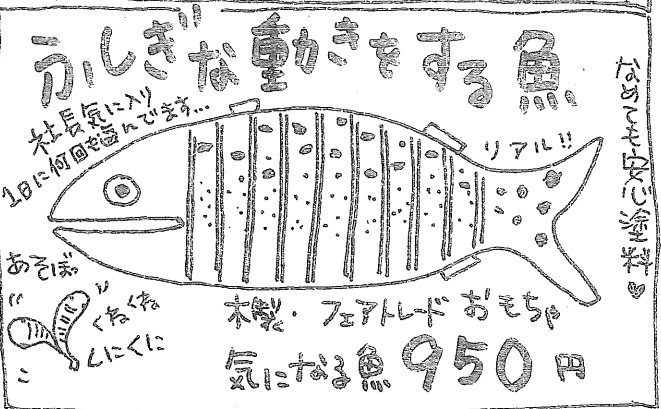 ふしぎな動きをする魚
社長気に入り
1日に何回も遊んでます...
リアル!!
なめても安心塗料♥
あそぼっ
くねくね
くにくに
木製・フェアトレードおもちゃ
気になる魚 950円